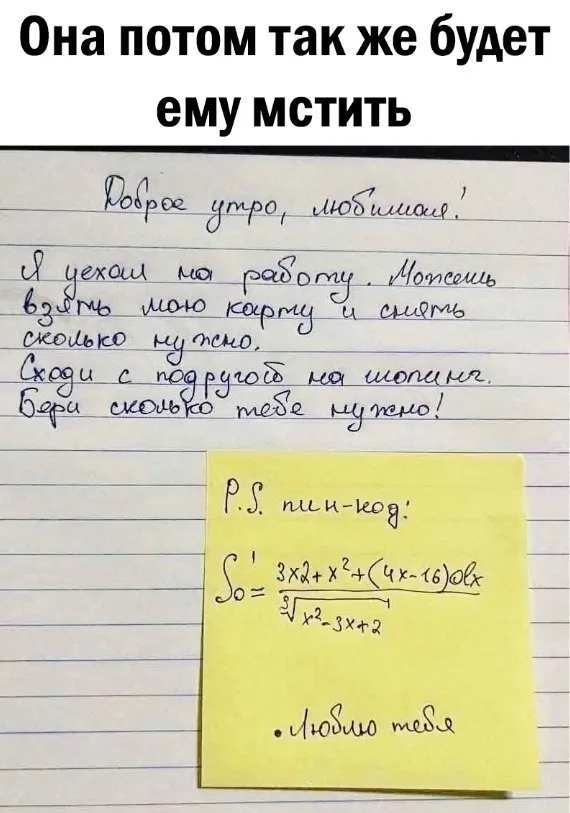 Она потом так же будет
ему мстить
Доброе утро, любимая!
Я уехал на работу. Можешь
взять мою карту и снять
сколько нужно.
Сходи с подругой на шопинг.
Бери сколько тебе нужно!
P.S. пин-код:
∫₀¹ = 3x2+x²+(4x-16)dx
∛x²-3x+2
• Люблю тебя